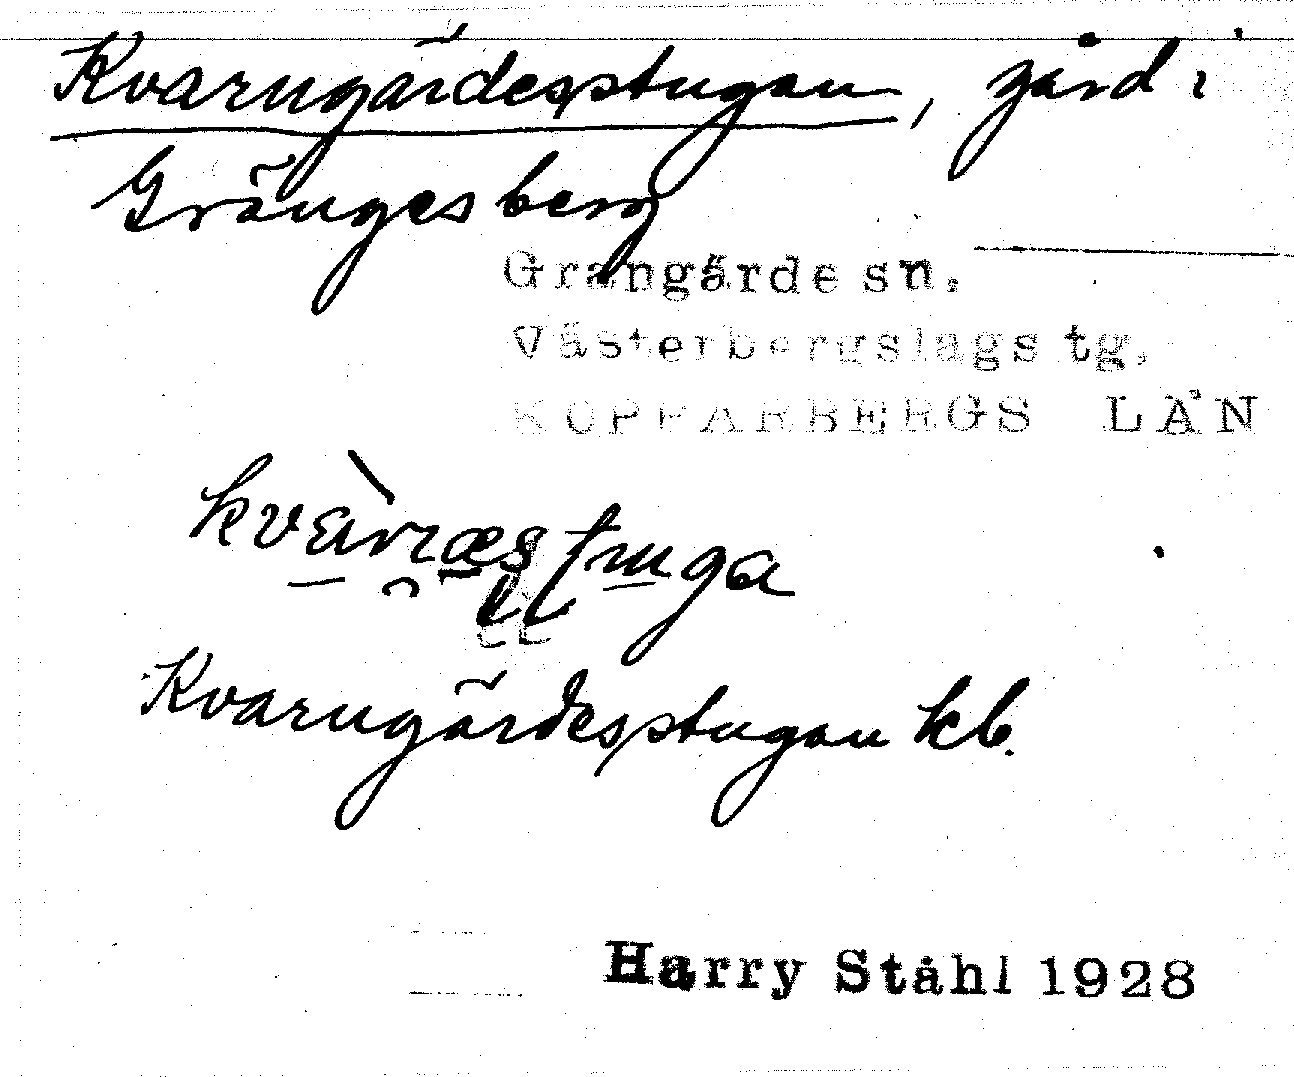 Kvarngärdesstugan, gård i
Grängesberg
Grangärde sn.
Västerbergslags tg.
KOPPARBERGS LÄN
Kvarngärdesstugan kb.
Harry Ståhl 1928